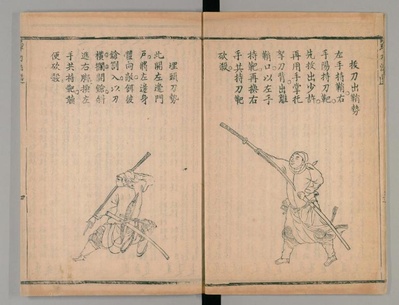 拔刀出鞘勢
左手持鞘右
手陽持刀靶
先拔出少許
再用手掌托
拏刀背出離
鞘口以左手
持靶再換右
手共持刀靶
砍殺
埋頭刀勢
此開左邊門
戶將左邊身
體向敵餌彼
鎗劄入以刀
橫攔開鎗斜
進右脚換左
手共持靶
便砍殺